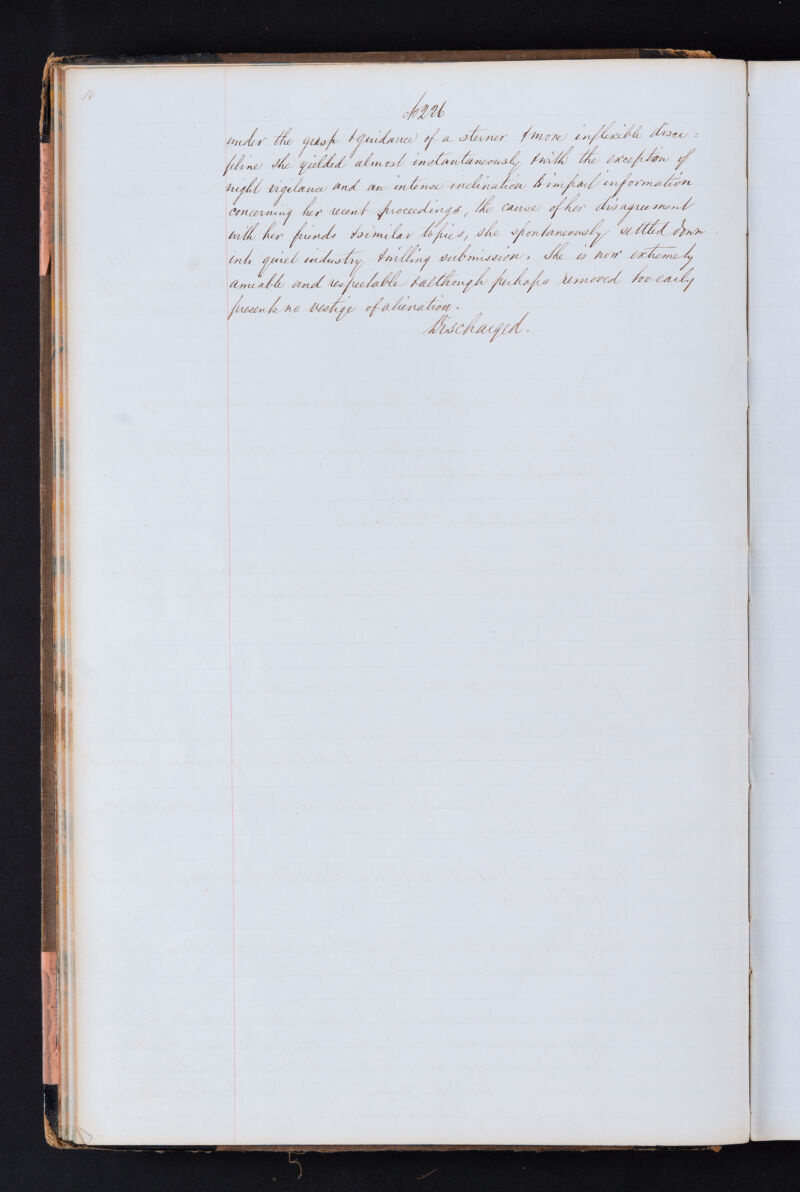 16
No 226
under the grasp & guidance of a sterner & more inflexible disci=
pline she yielded almost instantaneously & with the exception of
night vigilance and an intense inclination to impart information
concerning her recent proceedings, the cause of her disagreement
with her friends & similar topics, she spontaneously settled down
into quiet industry & willing submission. She is now extremely
amiable and respectable & although perhaps removed too early
presents no vestige of alienation.
Discharged.